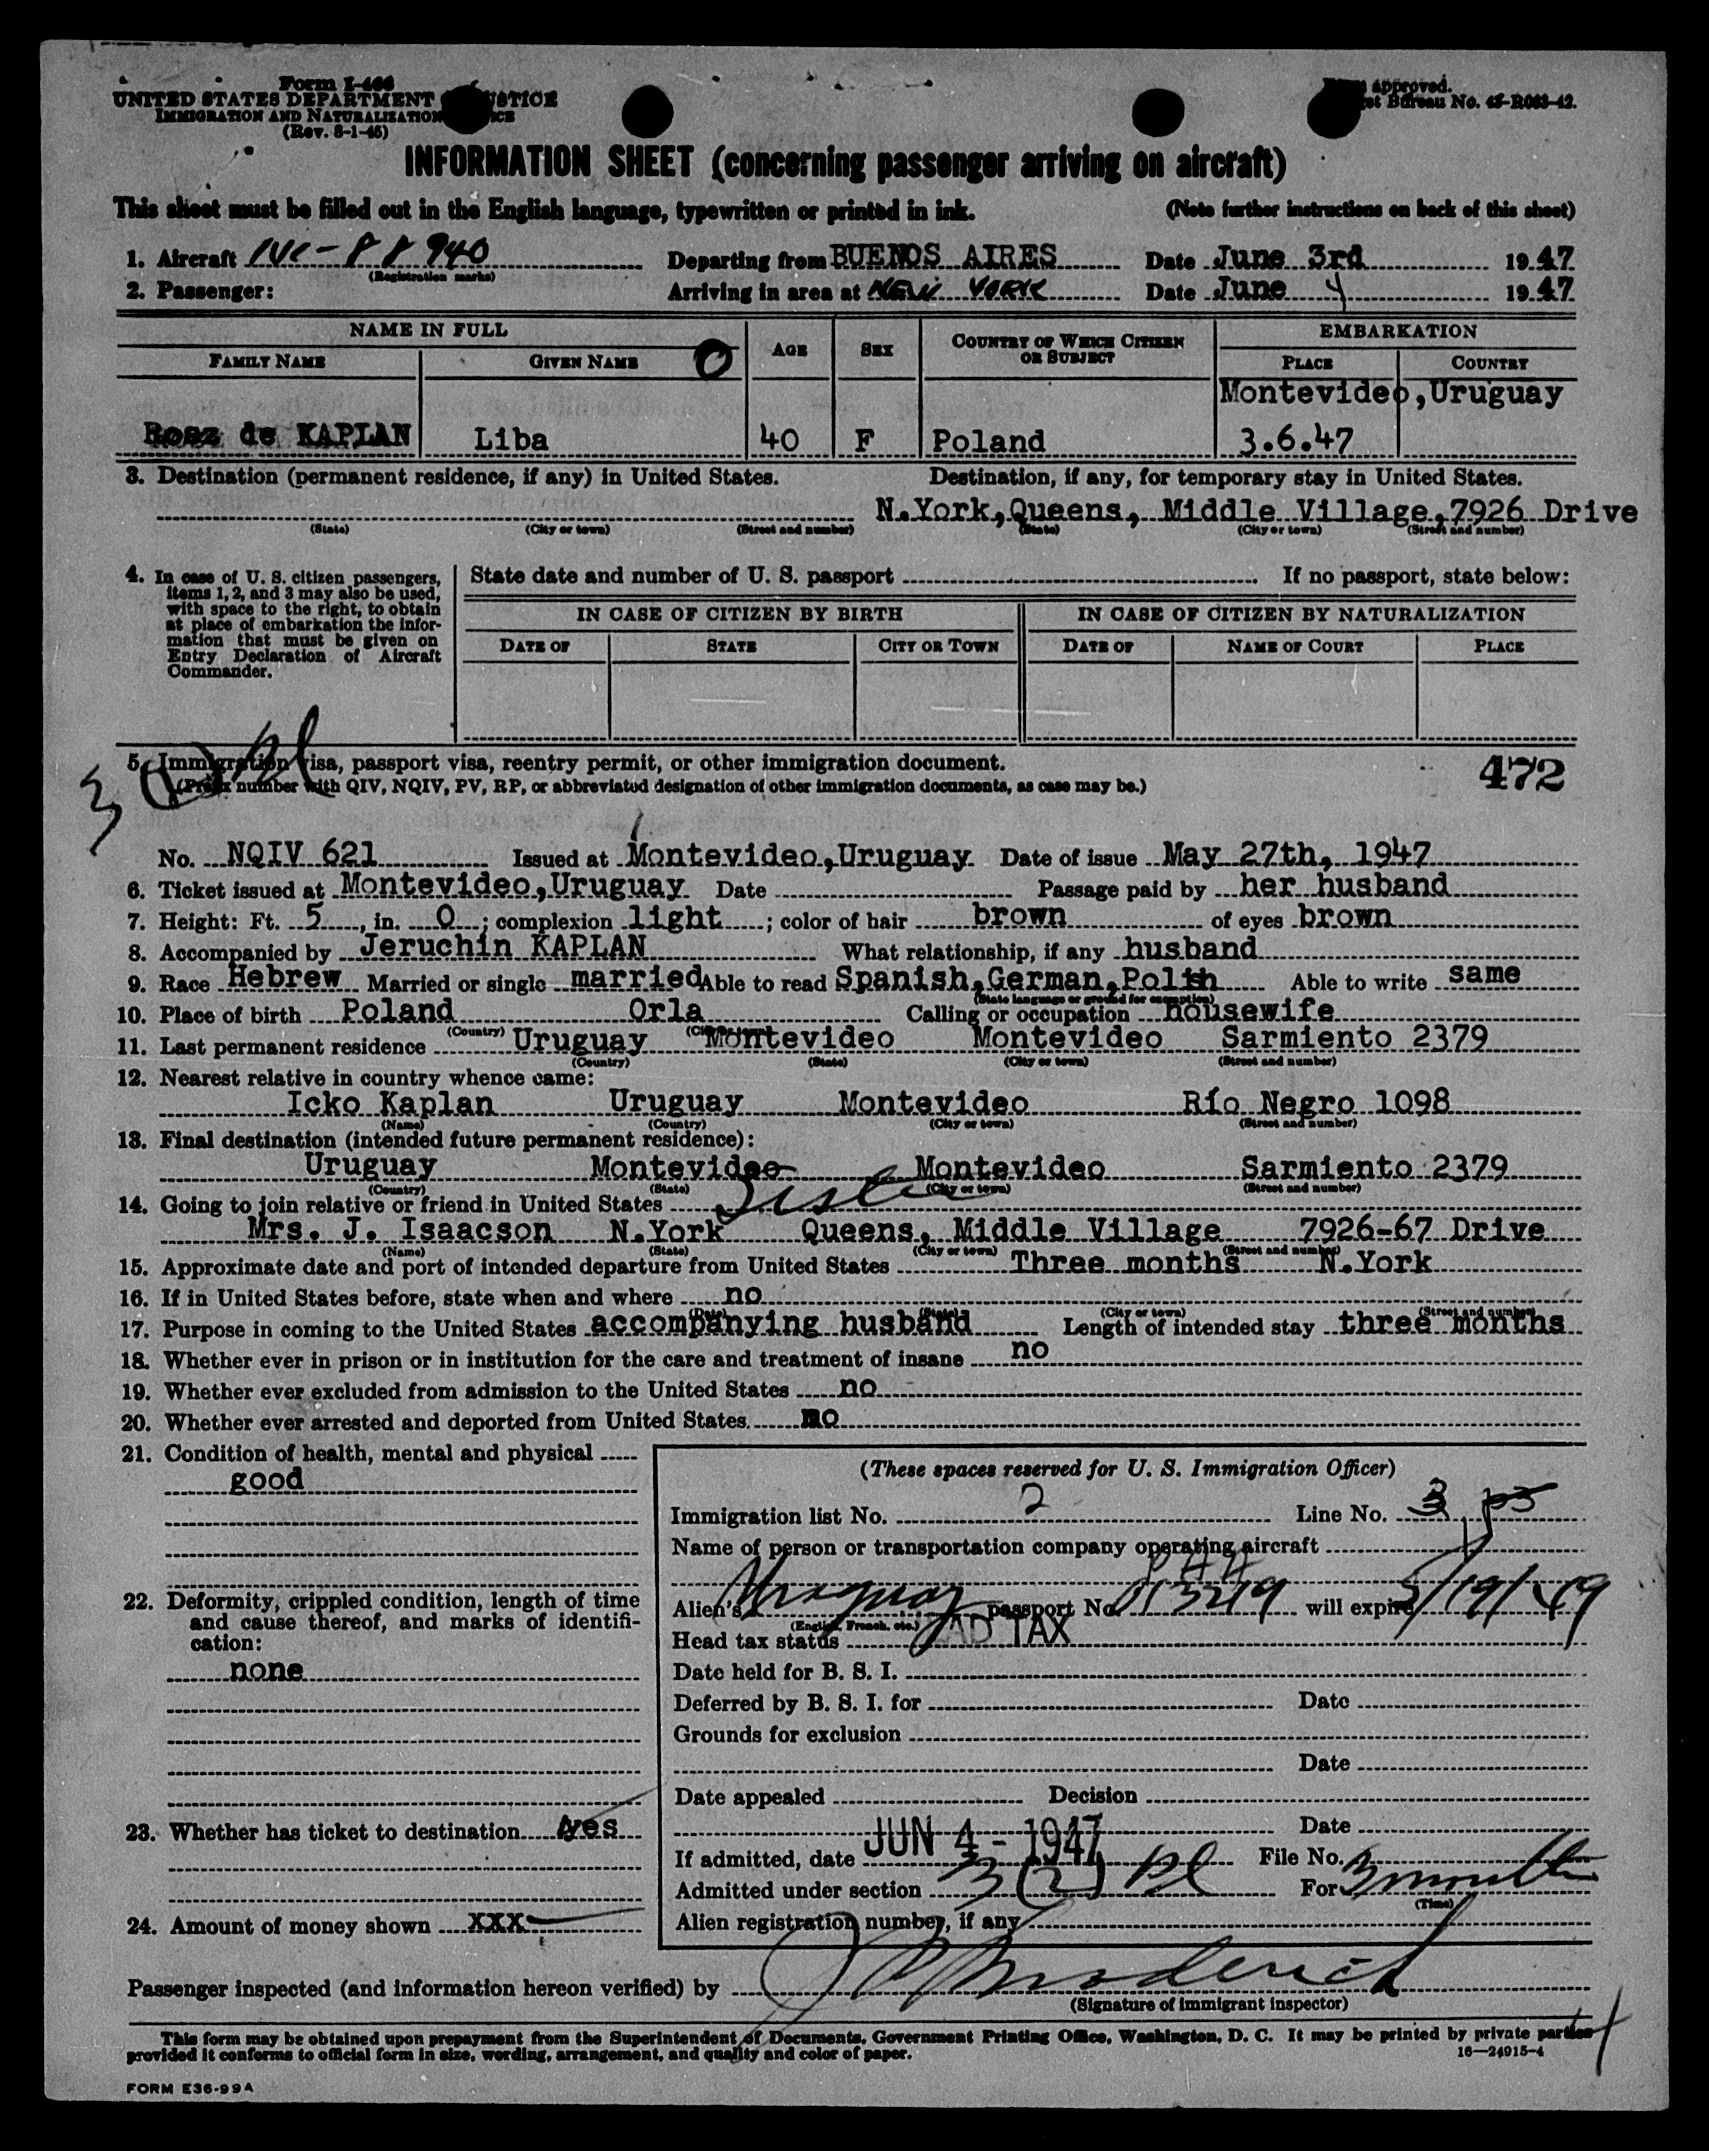 Form I-466
UNITED STATES DEPARTMENT
IMMIGRATION AND NATURALIZATION
(Rev. 8-1-45)
approved.
Bureau No. 43-R083-42.
INFORMATION SHEET (concerning passenger arriving on aircraft)
This sheet must be filled out in the English language, typewritten or printed in ink. (Note further instructions on back of this sheet)
1. Aircraft NC-88940 Departing from BUENOS AIRES Date June 3rd 1947
(Registration marks)
2. Passenger: Arriving in area at NEW YORK Date June 4 1947
NAME IN FULL AGE SEX COUNTRY OF WHICH CITIZEN OR SUBJECT EMBARKATION
FAMILY NAME GIVEN NAME PLACE COUNTRY
Montevideo, Uruguay
de KAPLAN Liba 40 F Poland 3.6.47
3. Destination (permanent residence, if any) in United States. Destination, if any, for temporary stay in United States.
N.York, Queens, Middle Village, 7926 Drive
(State) (City or town) (Street and number) (State) (City or town) (Street and number)
4. In case of U. S. citizen passengers, items 1, 2, and 3 may also be used, with space to the right, to obtain at place of embarkation the information that must be given on Entry Declaration of Aircraft Commander.
State date and number of U. S. passport If no passport, state below:
IN CASE OF CITIZEN BY BIRTH IN CASE OF CITIZEN BY NATURALIZATION
DATE OF STATE CITY OR TOWN DATE OF NAME OF COURT PLACE
5. Immigration visa, passport visa, reentry permit, or other immigration document. 472
(Prefix number with QIV, NQIV, PV, RP, or abbreviated designation of other immigration documents, as case may be.)
No. NQIV 621 Issued at Montevideo, Uruguay Date of issue May 27th, 1947
6. Ticket issued at Montevideo, Uruguay Date Passage paid by her husband
7. Height: Ft. 5, in. 0; complexion light; color of hair brown of eyes brown
8. Accompanied by Jeruchin KAPLAN What relationship, if any husband
9. Race Hebrew Married or single married Able to read Spanish, German, Polish Able to write same
(State language or ground for exemption)
10. Place of birth Poland Orla Calling or occupation housewife
(Country) (City or town)
11. Last permanent residence Uruguay Montevideo Montevideo Sarmiento 2379
(Country) (State) (City or town) (Street and number)
12. Nearest relative in country whence came:
Icko Kaplan Uruguay Montevideo Río Negro 1098
(Name) (Country) (City or town) (Street and number)
13. Final destination (intended future permanent residence):
Uruguay Montevideo Montevideo Sarmiento 2379
(Country) (State) (City or town) (Street and number)
14. Going to join relative or friend in United States Sister
Mrs. J. Isaacson N.York Queens, Middle Village 7926-67 Drive
(Name) (State) (City or town) (Street and number)
15. Approximate date and port of intended departure from United States Three months N.York
16. If in United States before, state when and where no
(Date) (State) (City or town) (Street and number)
17. Purpose in coming to the United States accompanying husband Length of intended stay three months
18. Whether ever in prison or in institution for the care and treatment of insane no
19. Whether ever excluded from admission to the United States no
20. Whether ever arrested and deported from United States. no
21. Condition of health, mental and physical
good
22. Deformity, crippled condition, length of time and cause thereof, and marks of identification:
none
23. Whether has ticket to destination yes
24. Amount of money shown XXX
(These spaces reserved for U. S. Immigration Officer)
Immigration list No. 2 Line No. 3
Name of person or transportation company operating aircraft
PAA
Alien's Uruguay passport No. 013219 will expire 5/19/49
(English, French, etc.)
Head tax status TAX
Date held for B. S. I.
Deferred by B. S. I. for Date
Grounds for exclusion
Date
Date appealed Decision
Date
If admitted, date JUN 4 - 1947 File No.
Admitted under section 3(2) For 3 months
(Time)
Alien registration number, if any
Passenger inspected (and information hereon verified) by
(Signature of immigrant inspector)
This form may be obtained upon prepayment from the Superintendent of Documents, Government Printing Office, Washington, D. C. It may be printed by private parties
provided it conforms to official form in size, wording, arrangement, and quality and color of paper. 16—24915-4
FORM E36-99A